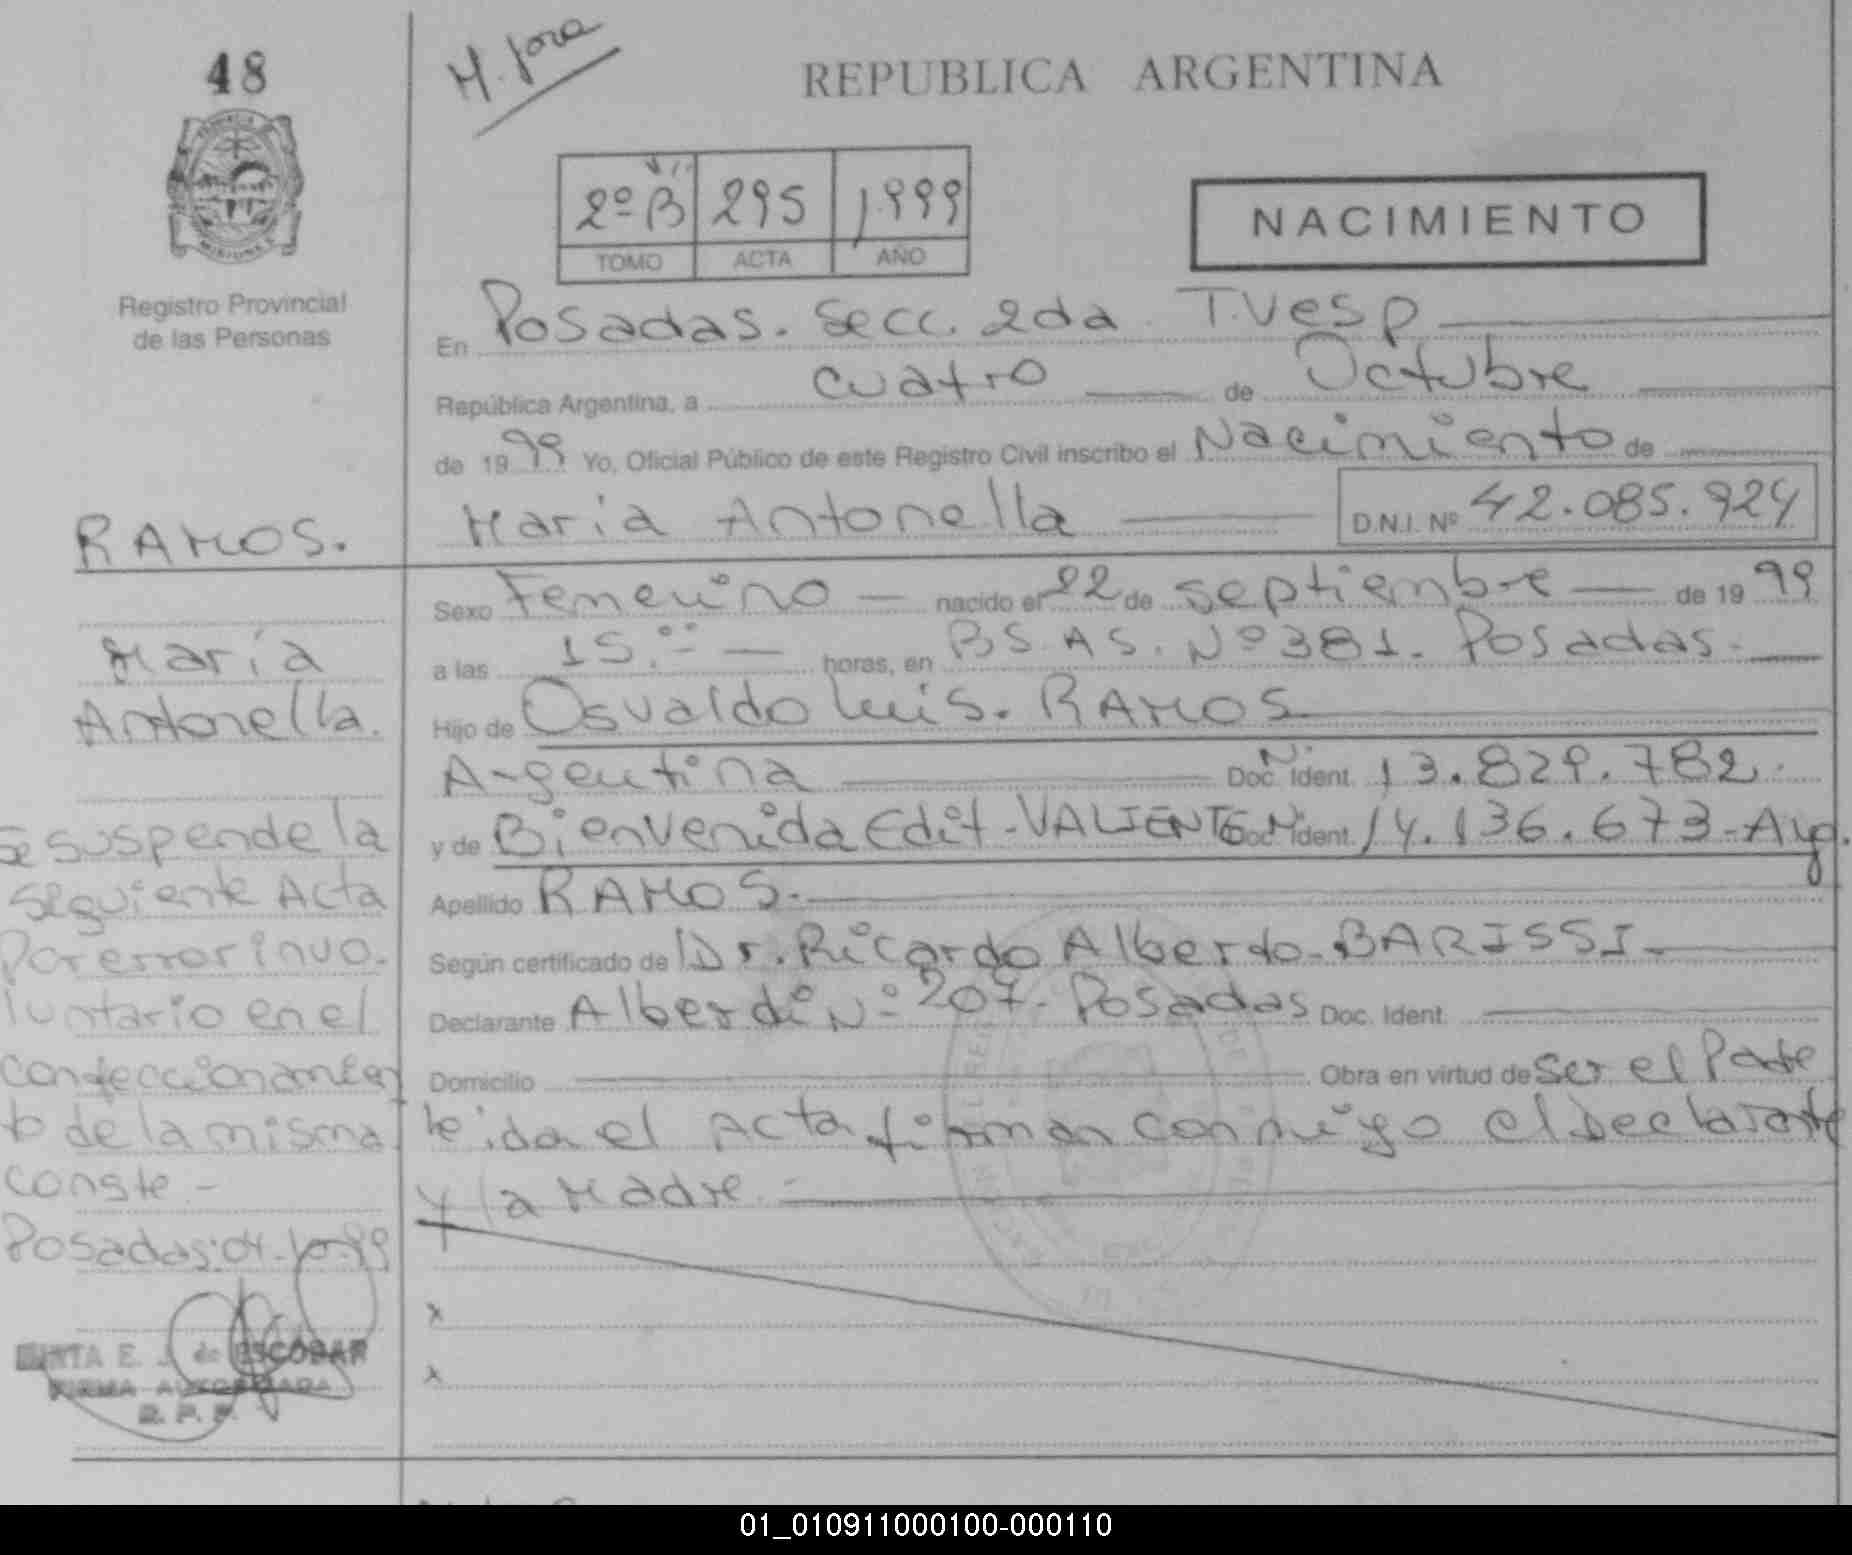 48
M. Jora
REPUBLICA ARGENTINA
2º B 295 1.999
TOMO ACTA AÑO
NACIMIENTO
Registro Provincial
de las Personas
En Posadas. Secc. 2da. T.Vesp
República Argentina, a cuatro de Octubre
de 1999 Yo, Oficial Público de este Registro Civil inscribo el Nacimiento de
RAMOS.
María Antonella D.N.I. Nº 42.085.924
Sexo Femenino nacido el 22 de septiembre de 1999
María
Antonella.
a las 15.00 horas, en BS.AS. Nº 381. Posadas.
Hijo de Osvaldo Luis. RAMOS
Argentina Doc. Ident. 13.829.782.
y de Bienvenida Edit. VALIENTE Doc. Ident. 14.136.673-Arg.
Apellido RAMOS.
Según certificado de Dr. Ricardo Alberto. BARISSI.
Declarante Alberdi Nº 207. Posadas Doc. Ident.
Domicilio Obra en virtud de ser el Padre
leida el Acta firman conmigo el Declarante
y la Madre.
x
x
Se suspende la
siguiente Acta
Por error invo-
luntario en el
confeccionamien
to de la misma
conste.-
Posadas: 04-10-99
E. J. de ESCOBAR
FIRMA AUTORIZADA
R. P. P.
01_010911000100-000110